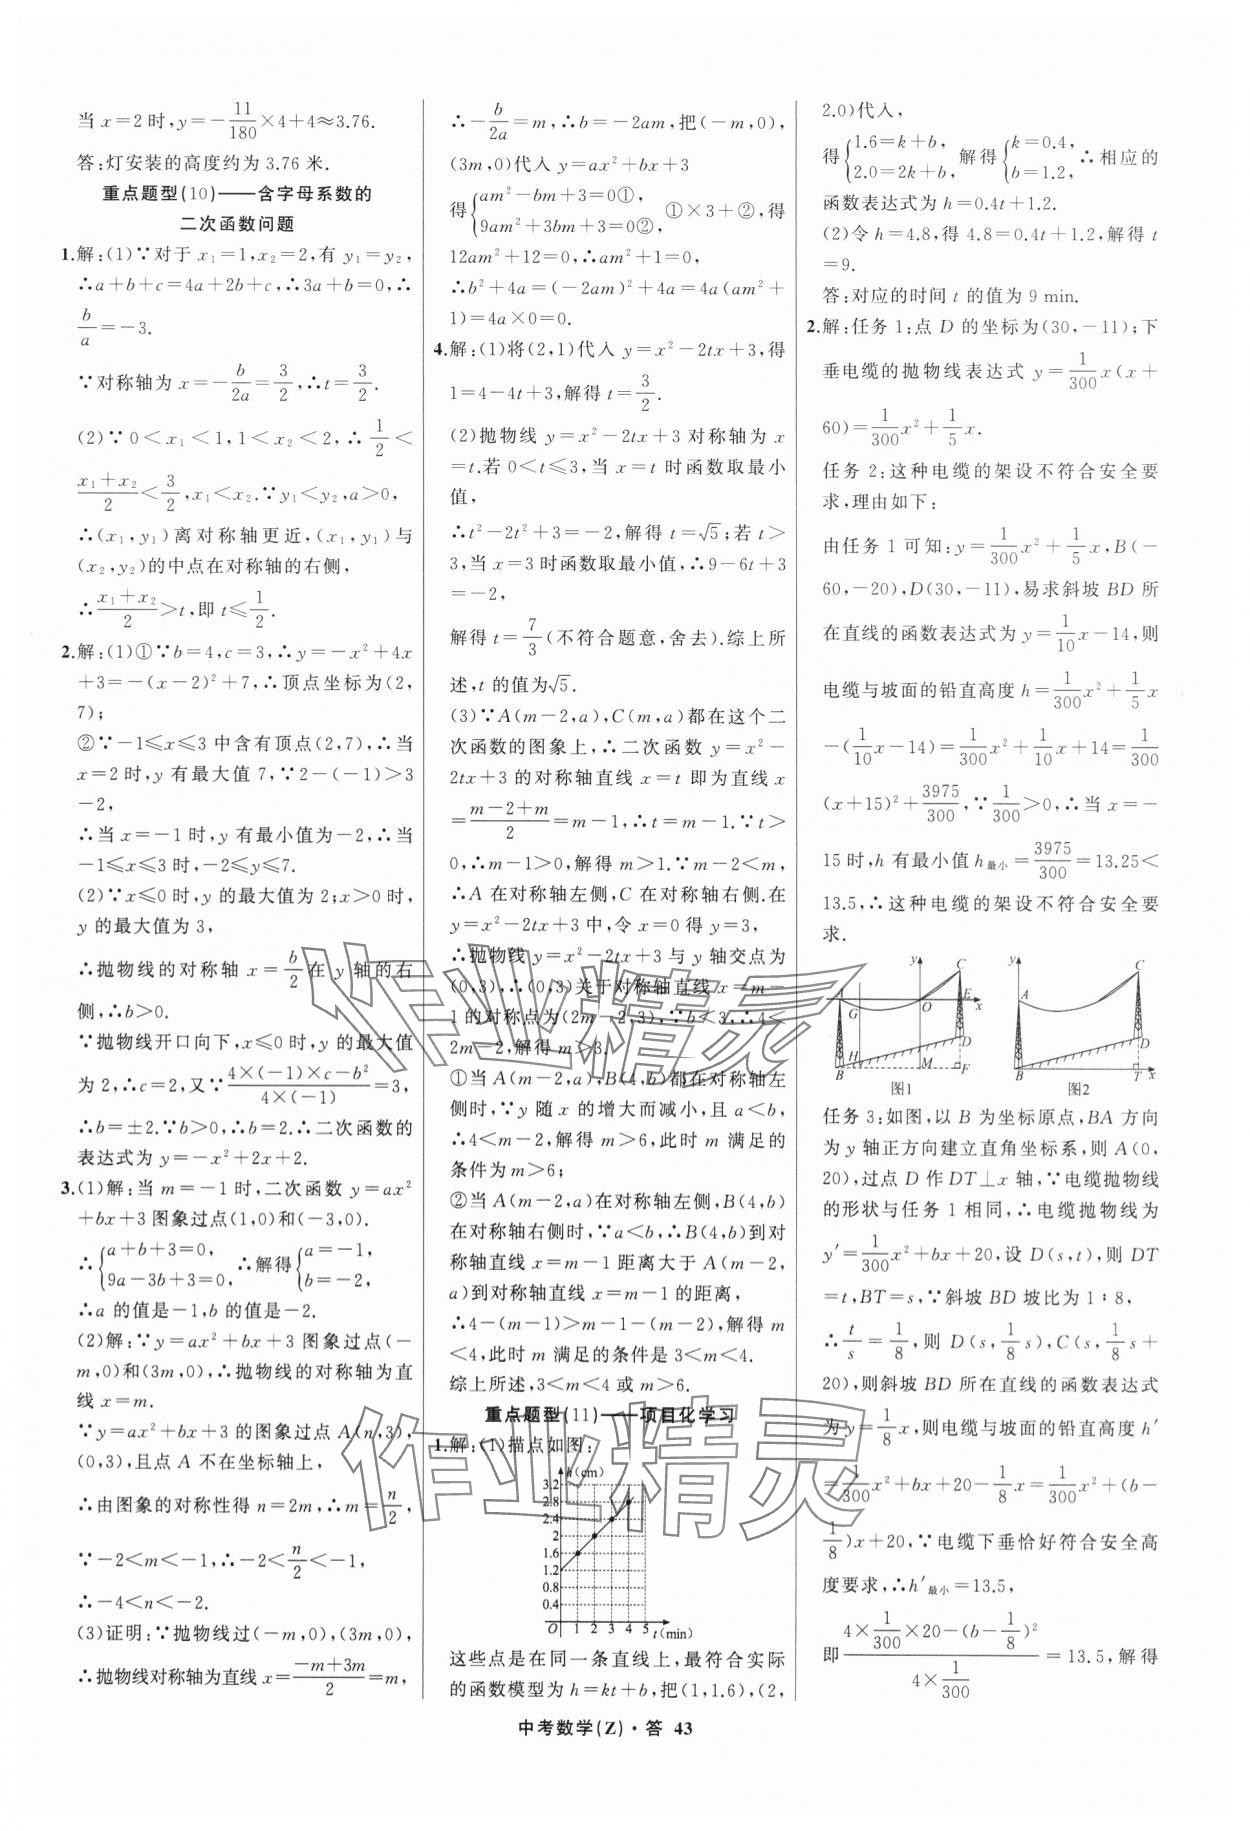 当 x=2 时,y=-11/180×4+4≈3.76.
答:灯安装的高度约为 3.76 米.
重点题型(10)——含字母系数的
二次函数问题
1.解:(1)∵对于 x₁=1,x₂=2,有 y₁=y₂,
∴a+b+c=4a+2b+c,∴3a+b=0,∴
b/a=-3.
∵对称轴为 x=-b/2a=3/2,∴t=3/2.
(2)∵0<x₁<1,1<x₂<2,∴1/2<
(x₁+x₂)/2<3/2,x₁<x₂.∵y₁<y₂,a>0,
∴(x₁,y₁)离对称轴更近,(x₁,y₁)与
(x₂,y₂)的中点在对称轴的右侧,
∴(x₁+x₂)/2>t,即 t≤1/2.
2.解:(1)①∵b=4,c=3,∴y=-x²+4x
+3=-(x-2)²+7,∴顶点坐标为(2,
7);
②∵-1≤x≤3 中含有顶点(2,7),∴当
x=2 时,y 有最大值 7,∵2-(-1)>3
-2,
∴当 x=-1 时,y 有最小值为-2,∴当
-1≤x≤3 时,-2≤y≤7.
(2)∵x≤0 时,y 的最大值为 2;x>0 时,
y 的最大值为 3,
∴抛物线的对称轴 x=b/2 在 y 轴的右
侧,∴b>0.
∵抛物线开口向下,x≤0 时,y 的最大值
为 2,∴c=2,又∵(4×(-1)×c-b²)/(4×(-1))=3,
∴b=±2.∵b>0,∴b=2.∴二次函数的
表达式为 y=-x²+2x+2.
3.(1)解:当 m=-1 时,二次函数 y=ax²
+bx+3 图象过点(1,0)和(-3,0).
∴{a+b+3=0, 9a-3b+3=0, ∴解得{a=-1, b=-2,
∴a 的值是-1,b 的值是-2.
(2)解:∵y=ax²+bx+3 图象过点(-
m,0)和(3m,0),∴抛物线的对称轴为直
线 x=m.
∵y=ax²+bx+3 的图象过点 A(n,3),
(0,3),且点 A 不在坐标轴上,
∴由图象的对称性得 n=2m,∴m=n/2,
∵-2<m<-1,∴-2<n/2<-1,
∴-4<n<-2.
(3)证明:∵抛物线过(-m,0),(3m,0),
∴抛物线对称轴为直线 x=(-m+3m)/2=m,
∴-b/2a=m,∴b=-2am,把(-m,0),
(3m,0)代入 y=ax²+bx+3
得{am²-bm+3=0①, 9am²+3bm+3=0②, ①×3+②,得
12am²+12=0,∴am²+1=0,
∴b²+4a=(-2am)²+4a=4a(am²+
1)=4a×0=0.
4.解:(1)将(2,1)代入 y=x²-2tx+3,得
1=4-4t+3,解得 t=3/2.
(2)抛物线 y=x²-2tx+3 对称轴为 x
=t.若 0<t≤3,当 x=t 时函数取最小
值,
∴t²-2t²+3=-2,解得 t=√5;若 t>
3,当 x=3 时函数取最小值,∴9-6t+3
=-2,
解得 t=7/3(不符合题意,舍去).综上所
述,t 的值为√5.
(3)∵A(m-2,a),C(m,a)都在这个二
次函数的图象上,∴二次函数 y=x²-
2tx+3 的对称轴直线 x=t 即为直线 x
=(m-2+m)/2=m-1,∴t=m-1.∵t>
0,∴m-1>0,解得 m>1.∵m-2<m,
∴A 在对称轴左侧,C 在对称轴右侧.在
y=x²-2tx+3 中,令 x=0 得 y=3,
∴抛物线 y=x²-2tx+3 与 y 轴交点为
(0,3),∴(0,3)关于对称轴直线 x=m-
1 的对称点为(2m-2,3),∵b<3,∴4<
2m-2,解得 m>3.
①当 A(m-2,a),B(4,b)都在对称轴左
侧时,∵y 随 x 的增大而减小,且 a<b,
∴4<m-2,解得 m>6,此时 m 满足的
条件为 m>6;
②当 A(m-2,a)在对称轴左侧,B(4,b)
在对称轴右侧时,∵a<b,∴B(4,b)到对
称轴直线 x=m-1 距离大于 A(m-2,
a)到对称轴直线 x=m-1 的距离,
∴4-(m-1)>m-1-(m-2),解得 m
<4,此时 m 满足的条件是 3<m<4.
综上所述,3<m<4 或 m>6.
重点题型(11)——项目化学习
1.解:(1)描点如图:
h(cm)
3.2
2.8
2.4
2
1.6
1.2
0.8
0.4
O 1 2 3 4 5 t(min)
这些点是在同一条直线上,最符合实际
的函数模型为 h=kt+b,把(1,1.6),(2,
2.0)代入,
得{1.6=k+b, 2.0=2k+b, 解得{k=0.4, b=1.2, ∴相应的
函数表达式为 h=0.4t+1.2.
(2)令 h=4.8,得 4.8=0.4t+1.2,解得 t
=9.
答:对应的时间 t 的值为 9 min.
2.解:任务 1:点 D 的坐标为(30,-11);下
垂电缆的抛物线表达式 y=1/300x(x+
60)=1/300x²+1/5x.
任务 2:这种电缆的架设不符合安全要
求,理由如下:
由任务 1 可知:y=1/300x²+1/5x,B(-
60,-20),D(30,-11),易求斜坡 BD 所
在直线的函数表达式为 y=1/10x-14,则
电缆与坡面的铅直高度 h=1/300x²+1/5x
-(1/10x-14)=1/300x²+1/10x+14=1/300
(x+15)²+3975/300,∵1/300>0,∴当 x=-
15 时,h 有最小值 h最小=3975/300=13.25<
13.5,∴这种电缆的架设不符合安全要
求.
y C A G O E x H M D B F 图1
y C A D B T x 图2
任务 3:如图,以 B 为坐标原点,BA 方向
为 y 轴正方向建立直角坐标系,则 A(0,
20),过点 D 作 DT⊥x 轴,∵电缆抛物线
的形状与任务 1 相同,∴电缆抛物线为
y′=1/300x²+bx+20,设 D(s,t),则 DT
=t,BT=s,∵斜坡 BD 坡比为 1∶8,
∴t/s=1/8,则 D(s,1/8s),C(s,1/8s+
20),则斜坡 BD 所在直线的函数表达式
为 y=1/8x,则电缆与坡面的铅直高度 h′
=1/300x²+bx+20-1/8x=1/300x²+(b-
1/8)x+20,∵电缆下垂恰好符合安全高
度要求,∴h′最小=13.5,
即(4×1/300×20-(b-1/8)²)/(4×1/300)=13.5,解得
中考数学(Z)·答 43
作业精灵
作业精灵